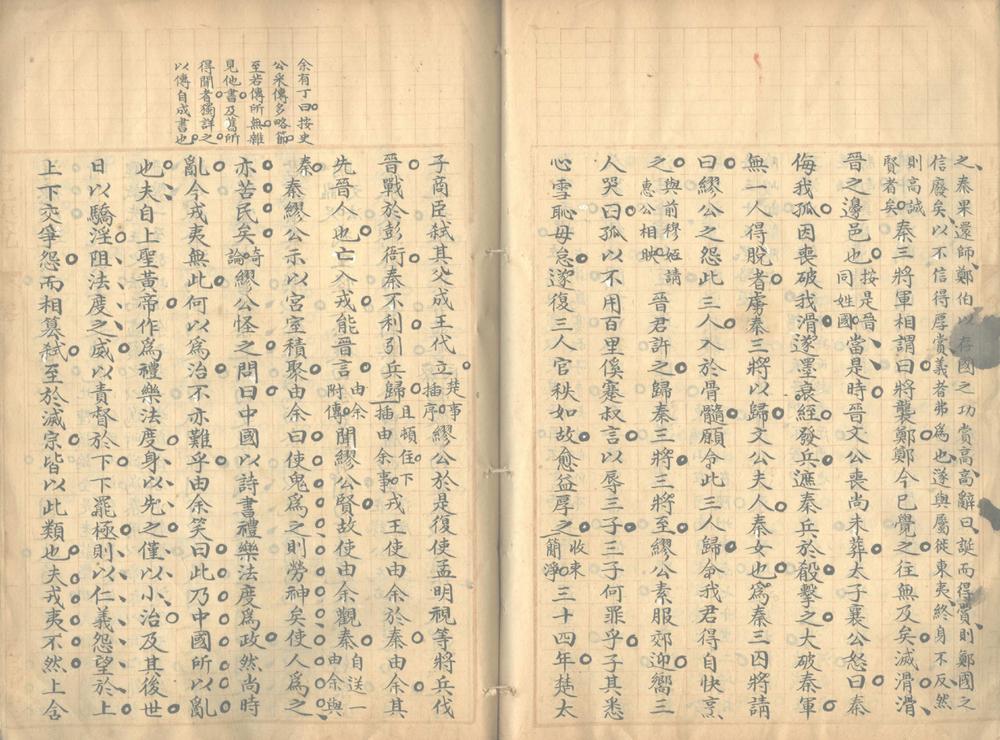 之秦果還師鄭伯以存國之功賞高高辭曰誕而得賞則鄭國之
信廢矣以不信得厚賞義者弗為也遂與屬徙東夷終身不反然
則高誠
賢者矣
秦三將軍相謂曰將襲鄭鄭今已覺之往無及矣滅滑滑
晉之邊邑也
按是晉
同姓國
當是時晉文公喪尚未葬太子襄公怒曰秦
侮我孤因喪破我滑遂墨衰絰發兵遮秦兵於殽擊之大破秦軍
無一人得脫者虜秦三將以歸文公夫人秦女也為秦三囚將請
曰繆公之怨此三人入於骨髓願令此三人歸令我君得自快烹
之
與前穆姬請
惠公相映
晉君許之歸秦三將三將至繆公素服郊迎嚮三
人哭曰孤以不用百里傒蹇叔言以辱三子三子何罪乎子其悉
心雪恥毋怠遂復三人官秩如故愈益厚之
收束
簡淨
三十四年楚太
余有丁曰按史
公采傳多略節
至若傳所無雜
見他書及舊所
得聞者獨詳之
以傳自成書也
子商臣弒其父成王代立
楚事
插序
繆公於是復使孟明視等將兵伐
晉戰於彭衙秦不利引兵歸
且頓住下
插由余事
戎王使由余於秦由余其
先晉人也亡入戎能晉言
由余
附傳
聞繆公賢故使由余觀秦
自送一
由余與
秦
秦繆公示以宮室積聚由余曰使鬼為之則勞神矣使人為之
亦苦民矣
奇
論
繆公怪之問曰中國以詩書禮樂法度為政然尚時
亂今戎夷無此何以為治不亦難乎由余笑曰此乃中國所以亂
也夫自上聖黃帝作為禮樂法度身以先之僅以小治及其後世
日以驕淫阻法度之威以責督於下下罷極則以仁義怨望於上
上下交爭怨而相篡弒至於滅宗皆以此類也夫戎夷不然上含